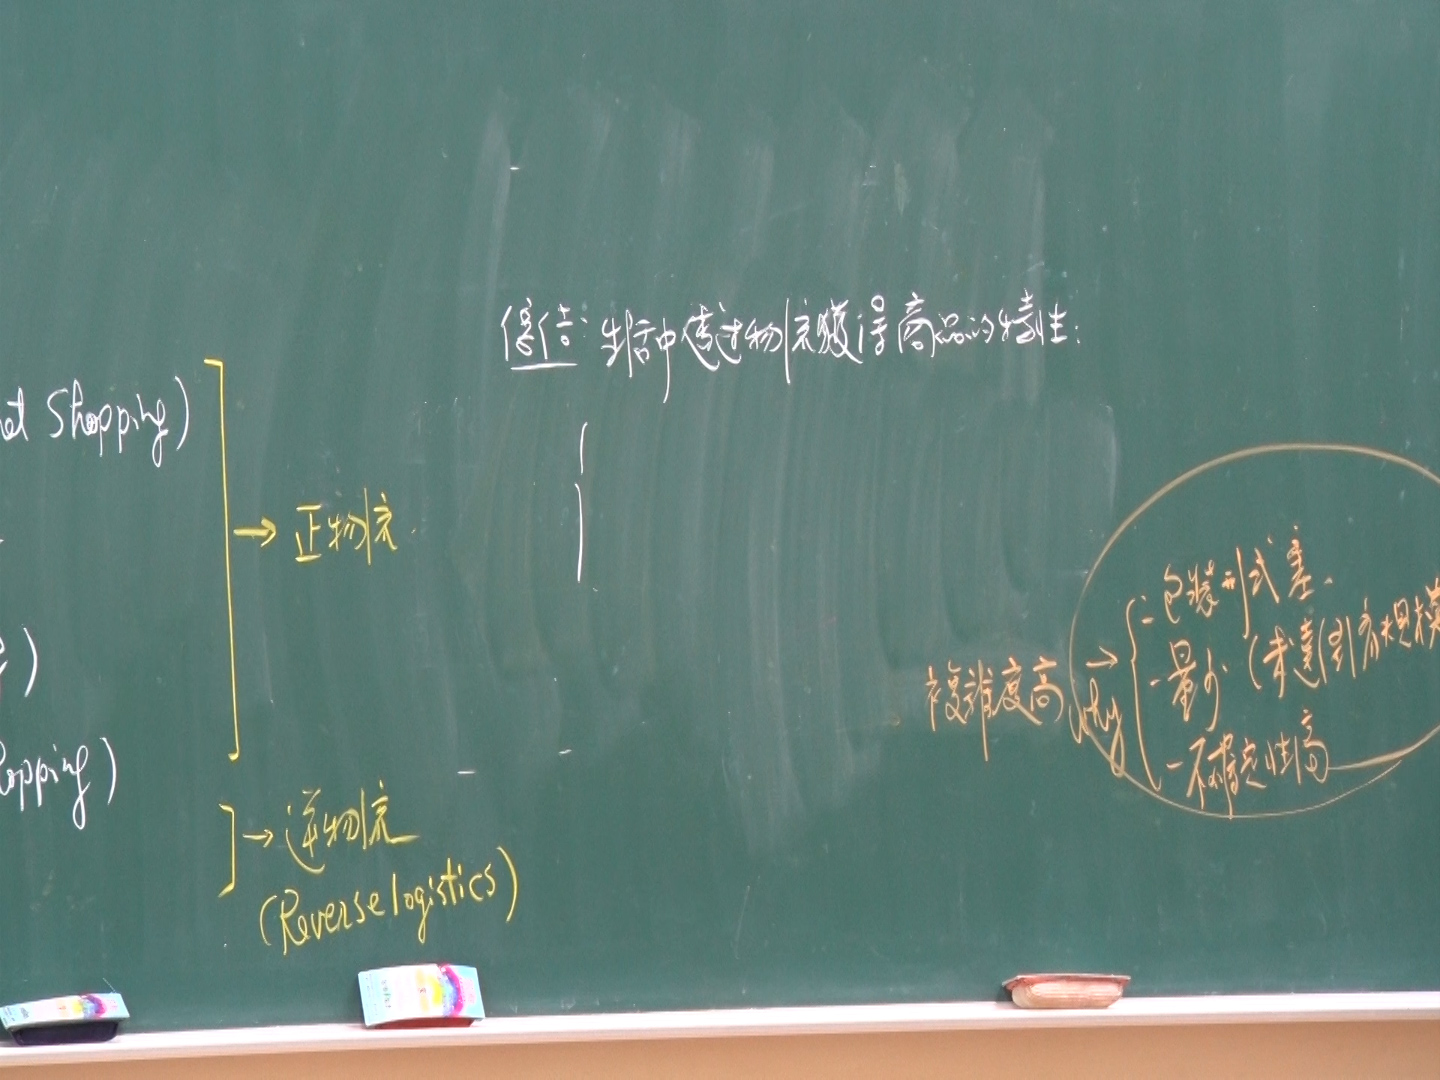 et Shopping)
→ 正物流
opping)
→ 逆物流
(Reverse logistics)
生活中透過物流獲得商品的特性:
複雜度高 → why
- 包裝形式差.
- 量少 (未達到有規模
- 不確定性高